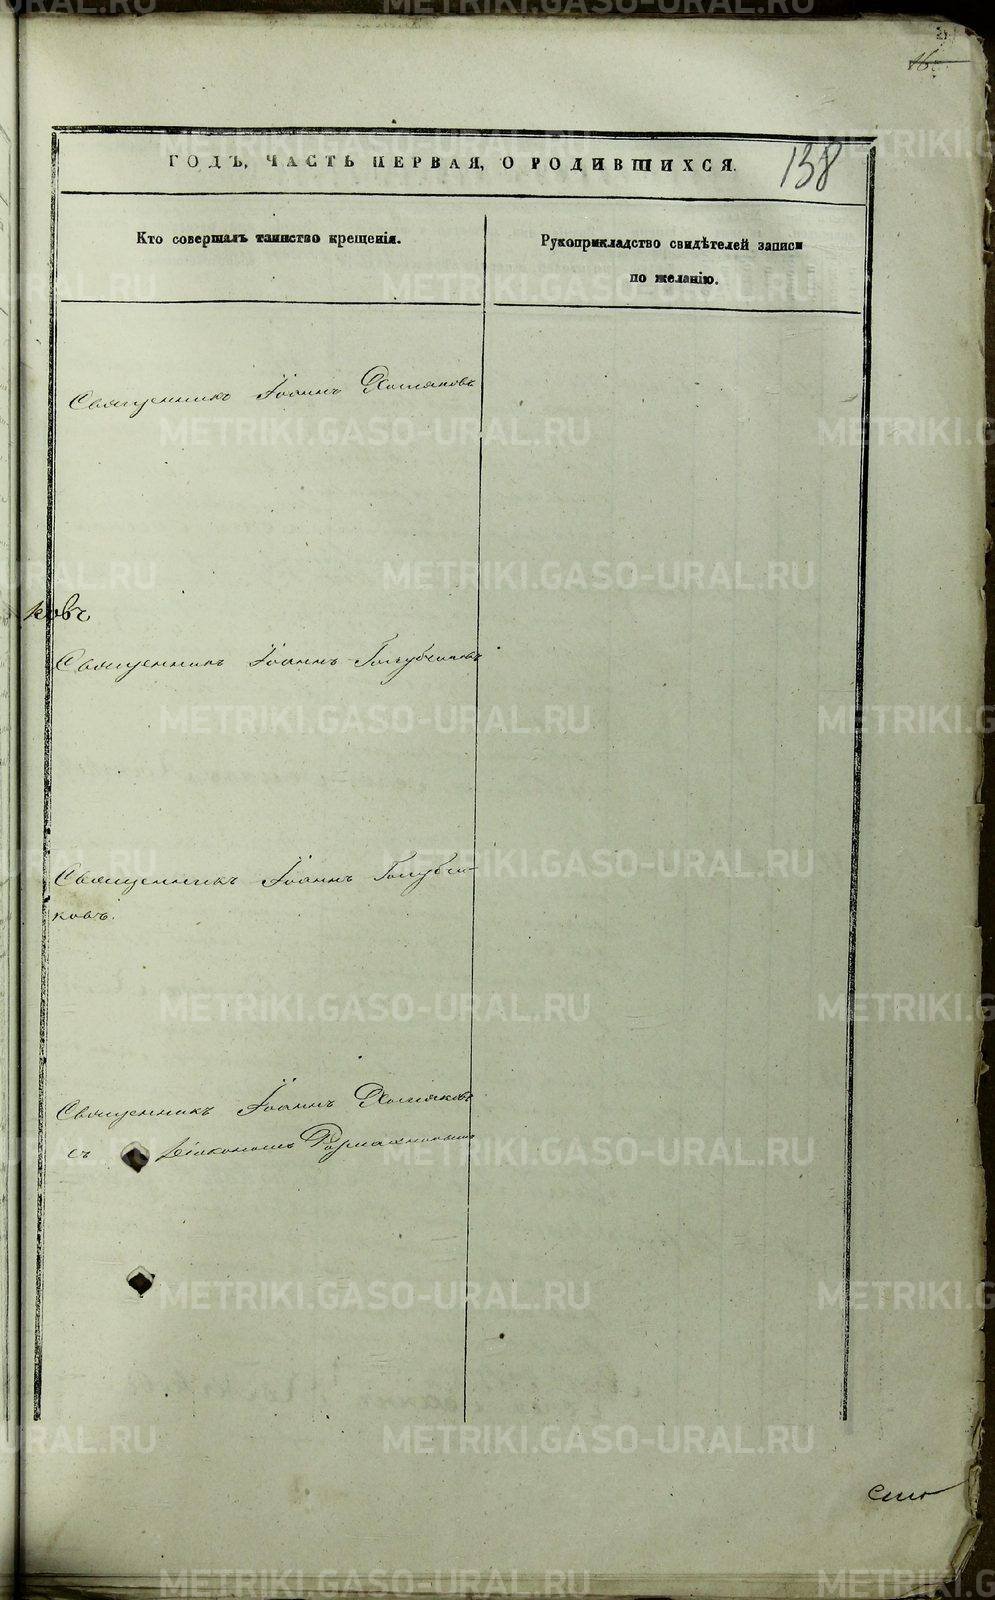 16
ГОДЪ, ЧАСТЬ ПЕРВАЯ, О РОДИВШИХСЯ.
138
Кто совершалъ таинство крещенія.
Рукоприкладство свидѣтелей записи
по желанію.
Священникъ Іоаннъ Хомяковъ
ковъ
Священникъ Іоаннъ Голубчиковъ
Священникъ Іоаннъ Голубчи-
ковъ.
Священникъ Іоаннъ Хомяковъ
съ Діакономъ
METRIKI.GASO-URAL.RU